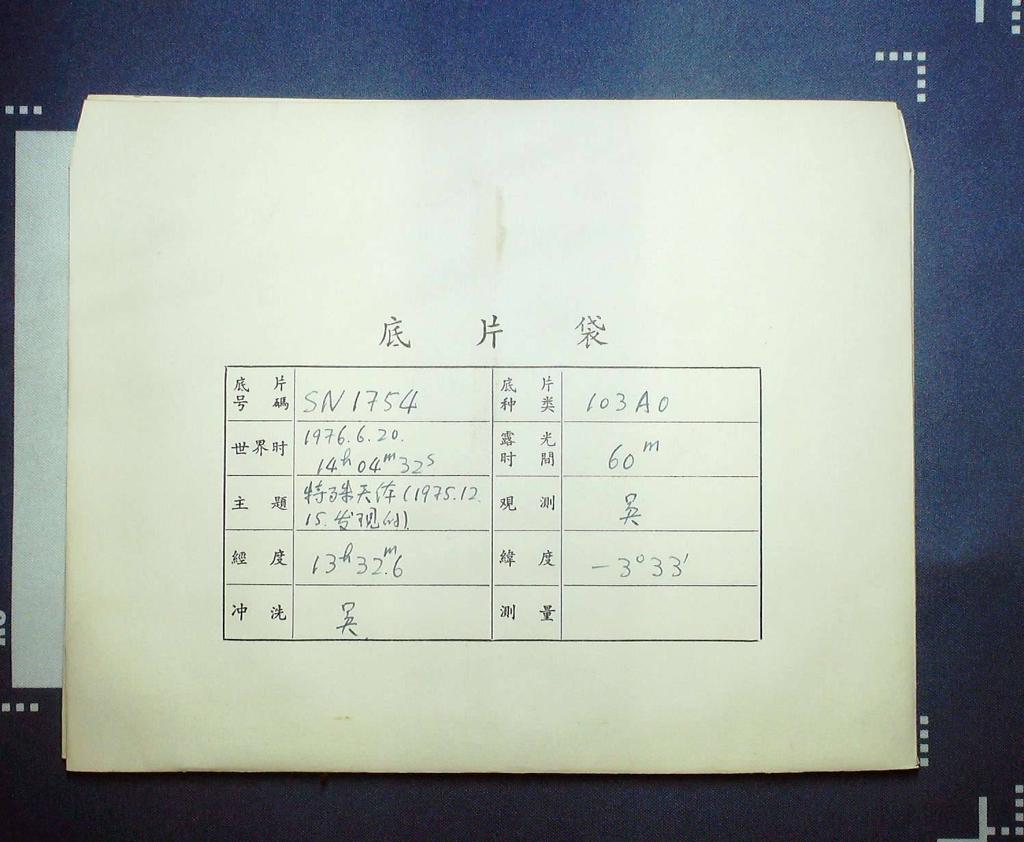 底 片 袋
底 片
号 碼
SN 1754
底 片
种 类
103 A0
世界时
1976.6.20.
14h 04m 32s
露 光
时 間
60m
主 題
特殊天体 (1975.12.
15. 发现的)
观 测
吴
經 度
13h 32m.6
緯 度
-3°33′
冲 洗
吴
測 量